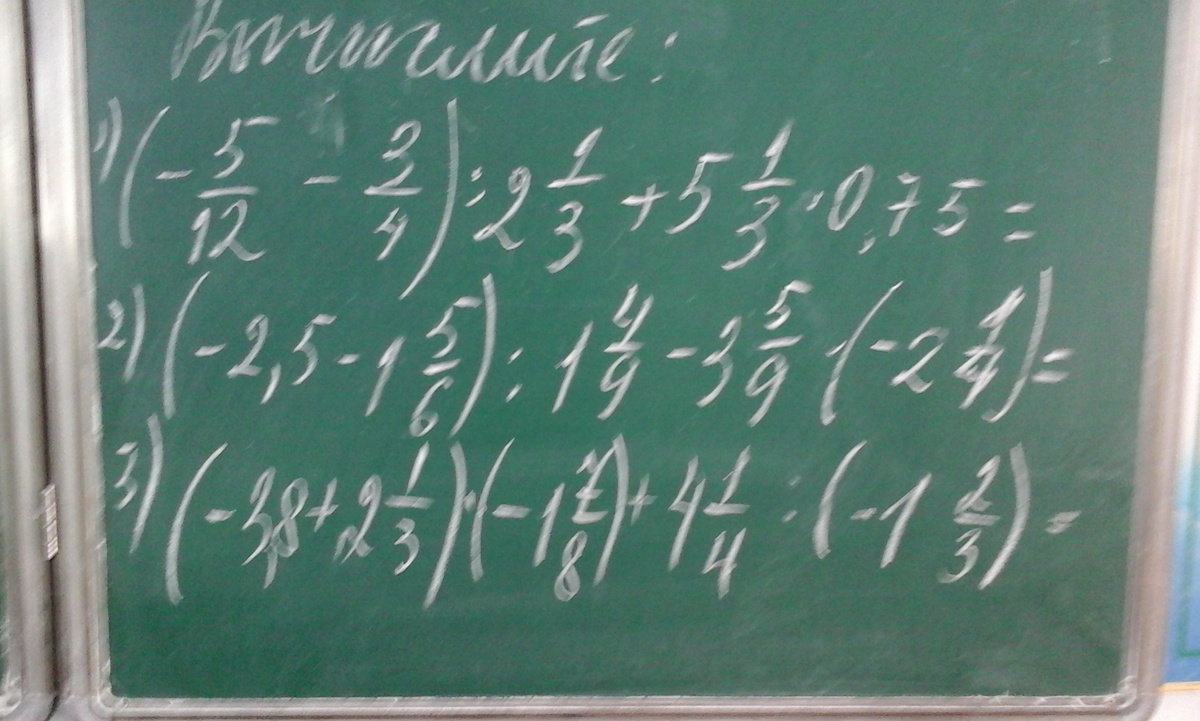 Вычислите:
1) (-5/12 - 3/4) : 2 1/3 + 5 1/3 · 0,75 =
2) (-2,5 - 1 5/6) : 1 4/9 - 3 5/9 · (-2 1/4) =
3) (-3,8 + 2 1/3) · (-1 7/8) + 4 1/4 : (-1 2/3) =